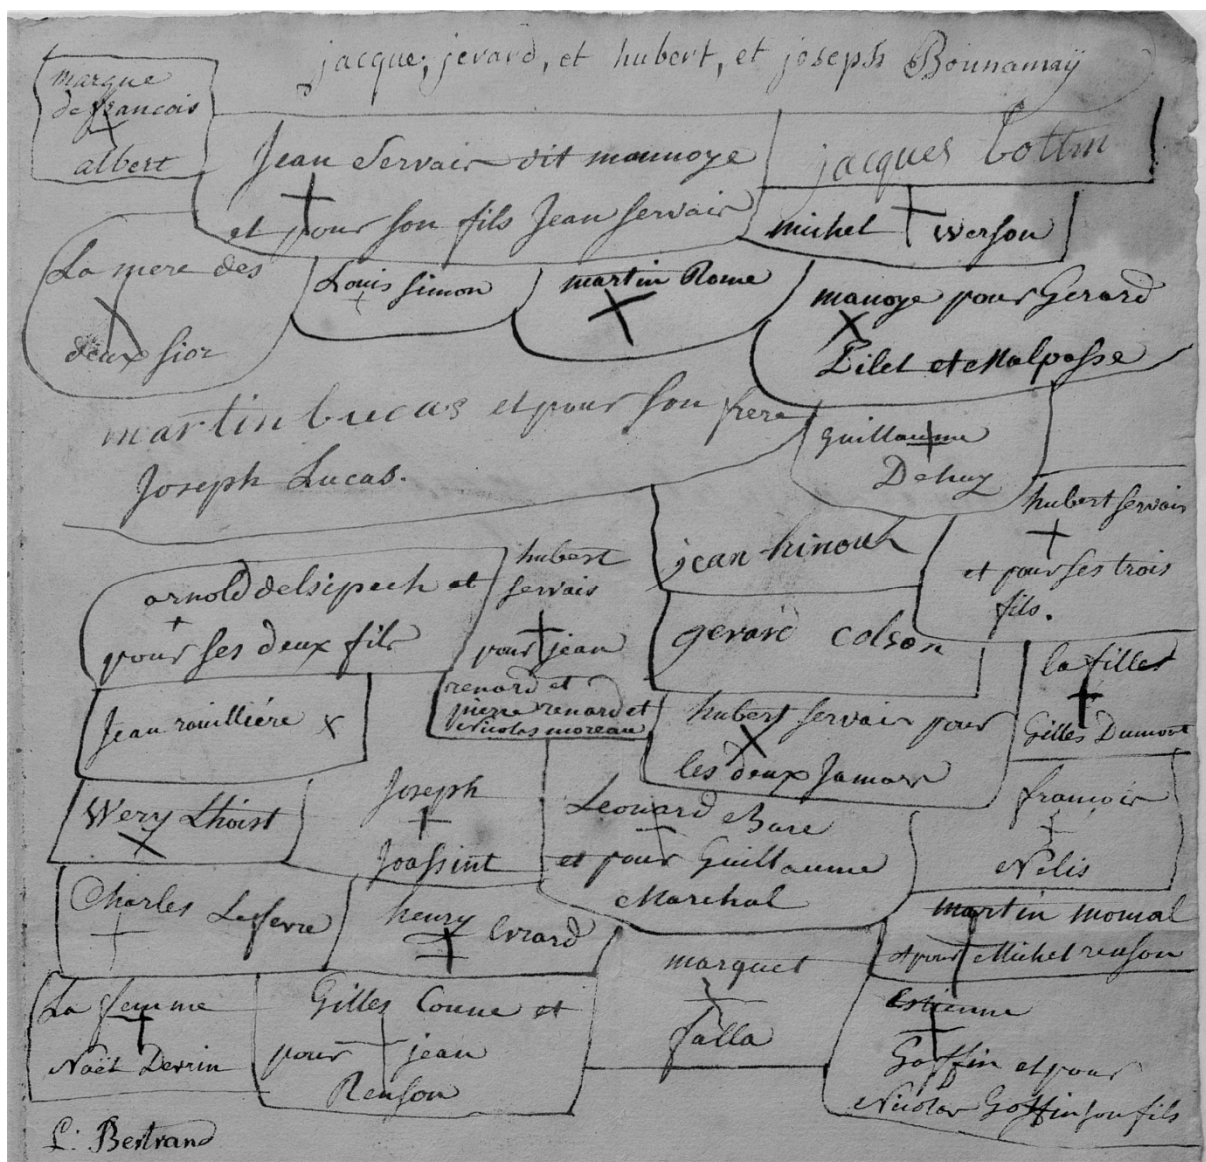 jacque, jerard, et hubert, et joseph Bonnamÿ
marque
de francois
albert
Jean Servais dit mannoye
et pour son fils Jean servais
jacques Cottin
michel Werson
La mere des
deux sior
Louis simon
martin Rome
manoye pour Gerard
Pilet et Malpasse
martin Lucas et pour son frere
Joseph Lucas.
Guillaume
Dehuy
hubert servais
et pour ses trois
fils.
jean hinouk
arnold delsipech et
pour ses deux fils
hubert
servais
pour jean
renard et
pierre renard et
Nicolas moreau
gerard colson
la filles
Gilles Dumont
Jean rouilliére
hubert servais pour
les deux Jamars
Wery Lhoist
Joseph
Joassint
Leonard Bare
et pour Guillaume
Marchal
francois
Nelis
Charles Lefevre
henry Evrard
martin momal
et pour Michel renson
La femme
Noël Derrin
Gilles Conne et
pour jean
Renson
marquet
falla
Estienne
Goffin et pour
Nicolas Goffin son fils
L: Bertrand